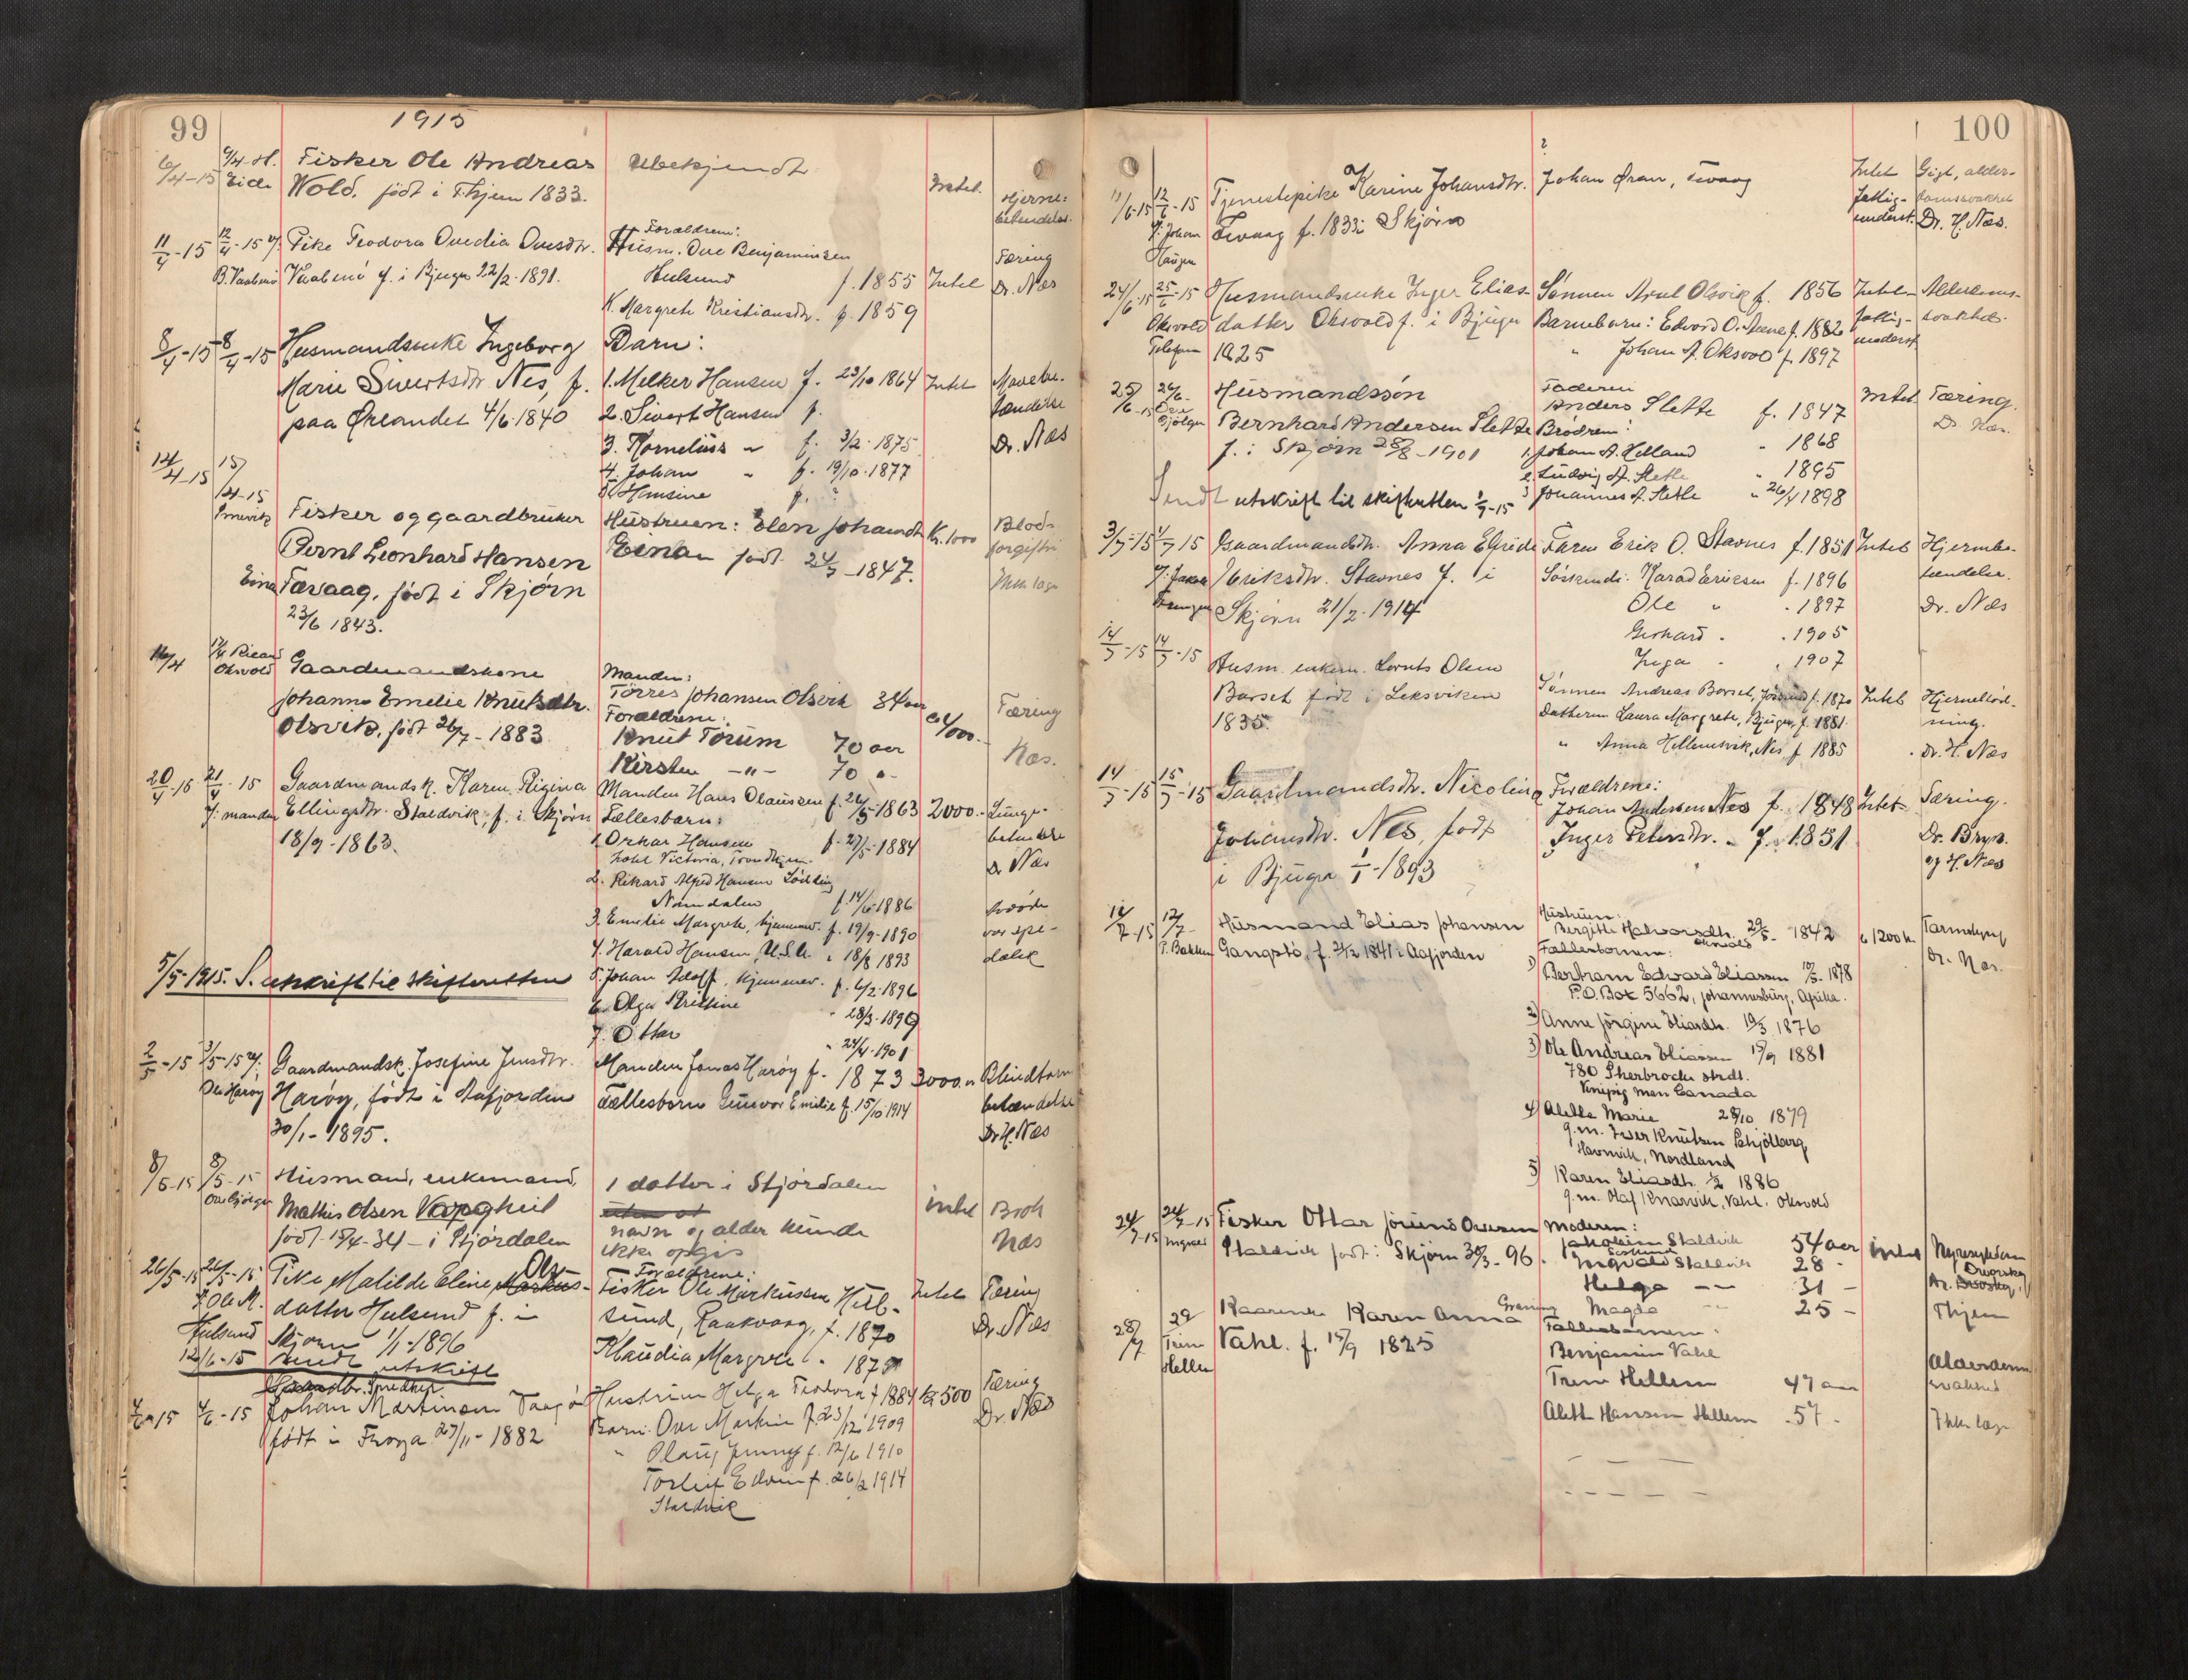 99
1915
6/4-15
Eide
Fisker Ole Andreas
Wold. født i Thjem 1833.
Ubekjendt
Intet.
Hjerne-
betændelse.
11/4-15 12/4-15
Pike Teodora Ovedia Ovesdtr.
født i Bjugn 22/2-1891.
Forældrene:
Husm. Ove Benjaminsen
Hulsund f. 1855
K. Margrete Kristiansdtr. f. 1859
Intet
Tæring
Dr. Næs
8/4-15 8/4-15
Husmandsenke Ingeborg
Marie Sivertsdtr Nes, f.
paa Ørlandet 4/6-1840
Barn:
1. Melker Hansen f. 23/10 1864
2. Sivert Hansen f.
3. Kornelius " f. 3/2-1875
4. Johan " f. 19/10-1877
5. Hansine f.
Intet
Mavebe-
tændelse
Dr. Næs
14/4-15 15/4-15
Fisker og gaardbruker
Bernt Leonhard Hansen
Einan Tævaag, født i Skjørn
23/6 1843.
Hustruen: Elen Johansdt
Einan født 24/7-1847.
Kr. 1000
Blod-
forgiftn
Ikke læge
16/4
Oksvold
Gaardmandskone
Johanna Emelie Knutsdtr.
Olsvik, født 26/7-1883
Manden:
Tørres Johansen Olsvik 34 aar
Forældrene:
Knut Torum 70 aar
Kirsten -"- 70 "
Tæring
Næs.
20/4-15 21/4-15
v/ manden
Gaardmandsk. Karen Rigina
Ellingsdtr. Staldvik, f. i Skjørn
18/9-1863.
Manden Hans Olaussen f. 26/5-1863
Fællesbarn:
1. Orkar Hansen f. 27/5-1884
hotel Victoria, Trondhjem
2. Rikard Alfred Hansen Lødding
Namdalen f. 14/6-1886
3. Emelie Margrete, hjemmev. f. 19/9-1890
4. Harald Hansen, U.S.A. " 18/8 1893
5. Johan Adolf, hjemmev. f. 6/2-1896
6. Olga Kristine " 28/3-1899
7. Ottar " 24/4-1901
2000.-
Lunge-
betændelse
Dr Næs
5/5-1915. S. utskrift til skifteretten
2/5-15 3/5-15 v/:
Ole Harøy
Gaardmandsk. Josefine Jensdtr.
Harøy, født i Aafjorden
30/1-1895.
Manden Jonas Harøy f. 1873
Fællesbarn Gunvor Emilie f. 15/10 1914
3000.-
Blindtarm
betændelse
Dr H. Næs
8/5-15 8/5-15
Husmand, enkemand,
Mathis Olsen
født 15/4-34 - i Stjørdalen
1 datter i Stjørdalen
navn og alder kunde
ikke opgis
intet
Brok
Næs
26/5-15 26/5-15
v/ Ole M.
Hulsund
Pike Matilde Eline Ols-
datter Hulsund f. i
Skjørn 1/1-1896
Forældrene:
Fisker Ole Markussen Hul-
sund, Raakvaag, f. 1870
Klaudia Margrete
Intet
Tæring
Dr. Næs
12/6-15 sendt utskrift
4/6-15
Johan Martinsen
født i Frøya 27/11-1882
Hustruen Helga Teodora f 1884
Barn: Ove Martin f. 23/12 1909
f. 12/6 1910
Torleif Edvin f. 26/2 1914
Staldvik
Kr 500
Tæring
Dr. Næs
100
11/6-15 12/6-15
v/ Johan
Haugen
Tjenestepike Karine Johansdtr.
Tevaag f. 1833 i Skjørn
?
Johan Øran, Tevaag
Intet
fattig-
underst.
Gigt, alder-
domssvakhet
Dr. H. Næs.
24/6-15 25/6-15
Oksvold
Telefon
Husmandsenke Inger Elias-
datter Oksvold f. i Bjugn
1825
Sønnen Arnt Olsvik f. 1856
Barnebarn: Edvard O. f. 1882
" Johan A. Oksvold f. 1897
Intet
fattig-
underst.
Alderdoms-
svakhet.
25/6-15 26/6-
Husmandssøn
Bernhard Andersen Slette
f. i Skjørn 28/8-1901
Faderen
Anders Slette f. 1847
Brødrene:
1. Johan A. Helland " 1868
2. Ludvig A. Slette " 1895
3 Johannes A. Slette " 26/4 1898
Intet
Tæring.
Dr. Næs.
Sendt utskrift til skifteretten 1/7-15
3/7-15 4/7 15
Gaardmandsdtr. Anna Elfride
Eriksdtr. Stavnes f. i
Skjørn 21/2-1914
Faren Erik O. Stavnes f. 1851
Søskende: Harad Eriksen f. 1896
Ole " " 1897
Gerhard " " 1905
Inga " " 1907
Intet
Hjernebe-
tændelse.
Dr. Næs
14/7-15 14/7-15
Husm. enkem. Lornts Olsen
Borset født i Leksviken
1835.
Sønnen Andreas Borset, Jøssund f. 1870
Datteren Laura Margrete, Bjugn, f. 1881.
" Anna Hellemsvik, Nes f 1885
Intet
Hjerneblød-
ning.
dr. H. Næs
14/7-15 15/7-15
Gaardmandsdtr. Nicoline
Johansdtr. Nes, født
i Bjugn 1/1-1893
Forældrene:
Johan Andersen Nes f. 1848
Inger Petersdtr. " f. 1851
Intet
Tæring.
Dr. Bryn.
og H. Næs
14/7-15 17/7-
P. Bakken
Husmand Elias Johansen
Gangstø, f. 2/12 1841 i Aafjorden
Hustruen:
Bergitte Halvorsdtr. 29/5-1842
Oksvold
Fællesbarn:
1) Bertram Edward Eliassen 10/5-1878
P.O. Box 5662, Johannesburg, Afrika.
2) Anne Jørgine Eliasdtr. 19/3 1876
3) Ole Andreas Eliassen 17/9 1881
780 Sherbrocke strdt.
Vinipig Man Canada
4) Aletta Marie 28/10 1879
g.m. Iver Knutsen Schjølberg
Havnvik, Nordland
5) Karen Eliasdtr. 1/2 1886
g.m. Olaf Knarvik, Vahl. Oksvold
ca 1200 kr
Tarmslyng
Dr. Næs.
24/7-15 24/7-15
Ingvald
Fisker Ottar Jørund Ovesen
Staldvik født i Skjørn 30/3-96.
Moderen:
Jakobine Staldvik 54 aar
Søskend
Ingvald Staldvik 28 -
Helga -"- 31 -
Magda -"- 25 -
intet
Nyresygdom
Thjem
28/7 29
Trine
Hellem
Kaarenke Karen Anna
Vahl. f. 15/9 1825
Fællesbarnene:
Benjamin Vahl
Trine Hellem 47 aar
Alett Hansen Hellem 57 -
Alderdom
svakhed
Ikke læge